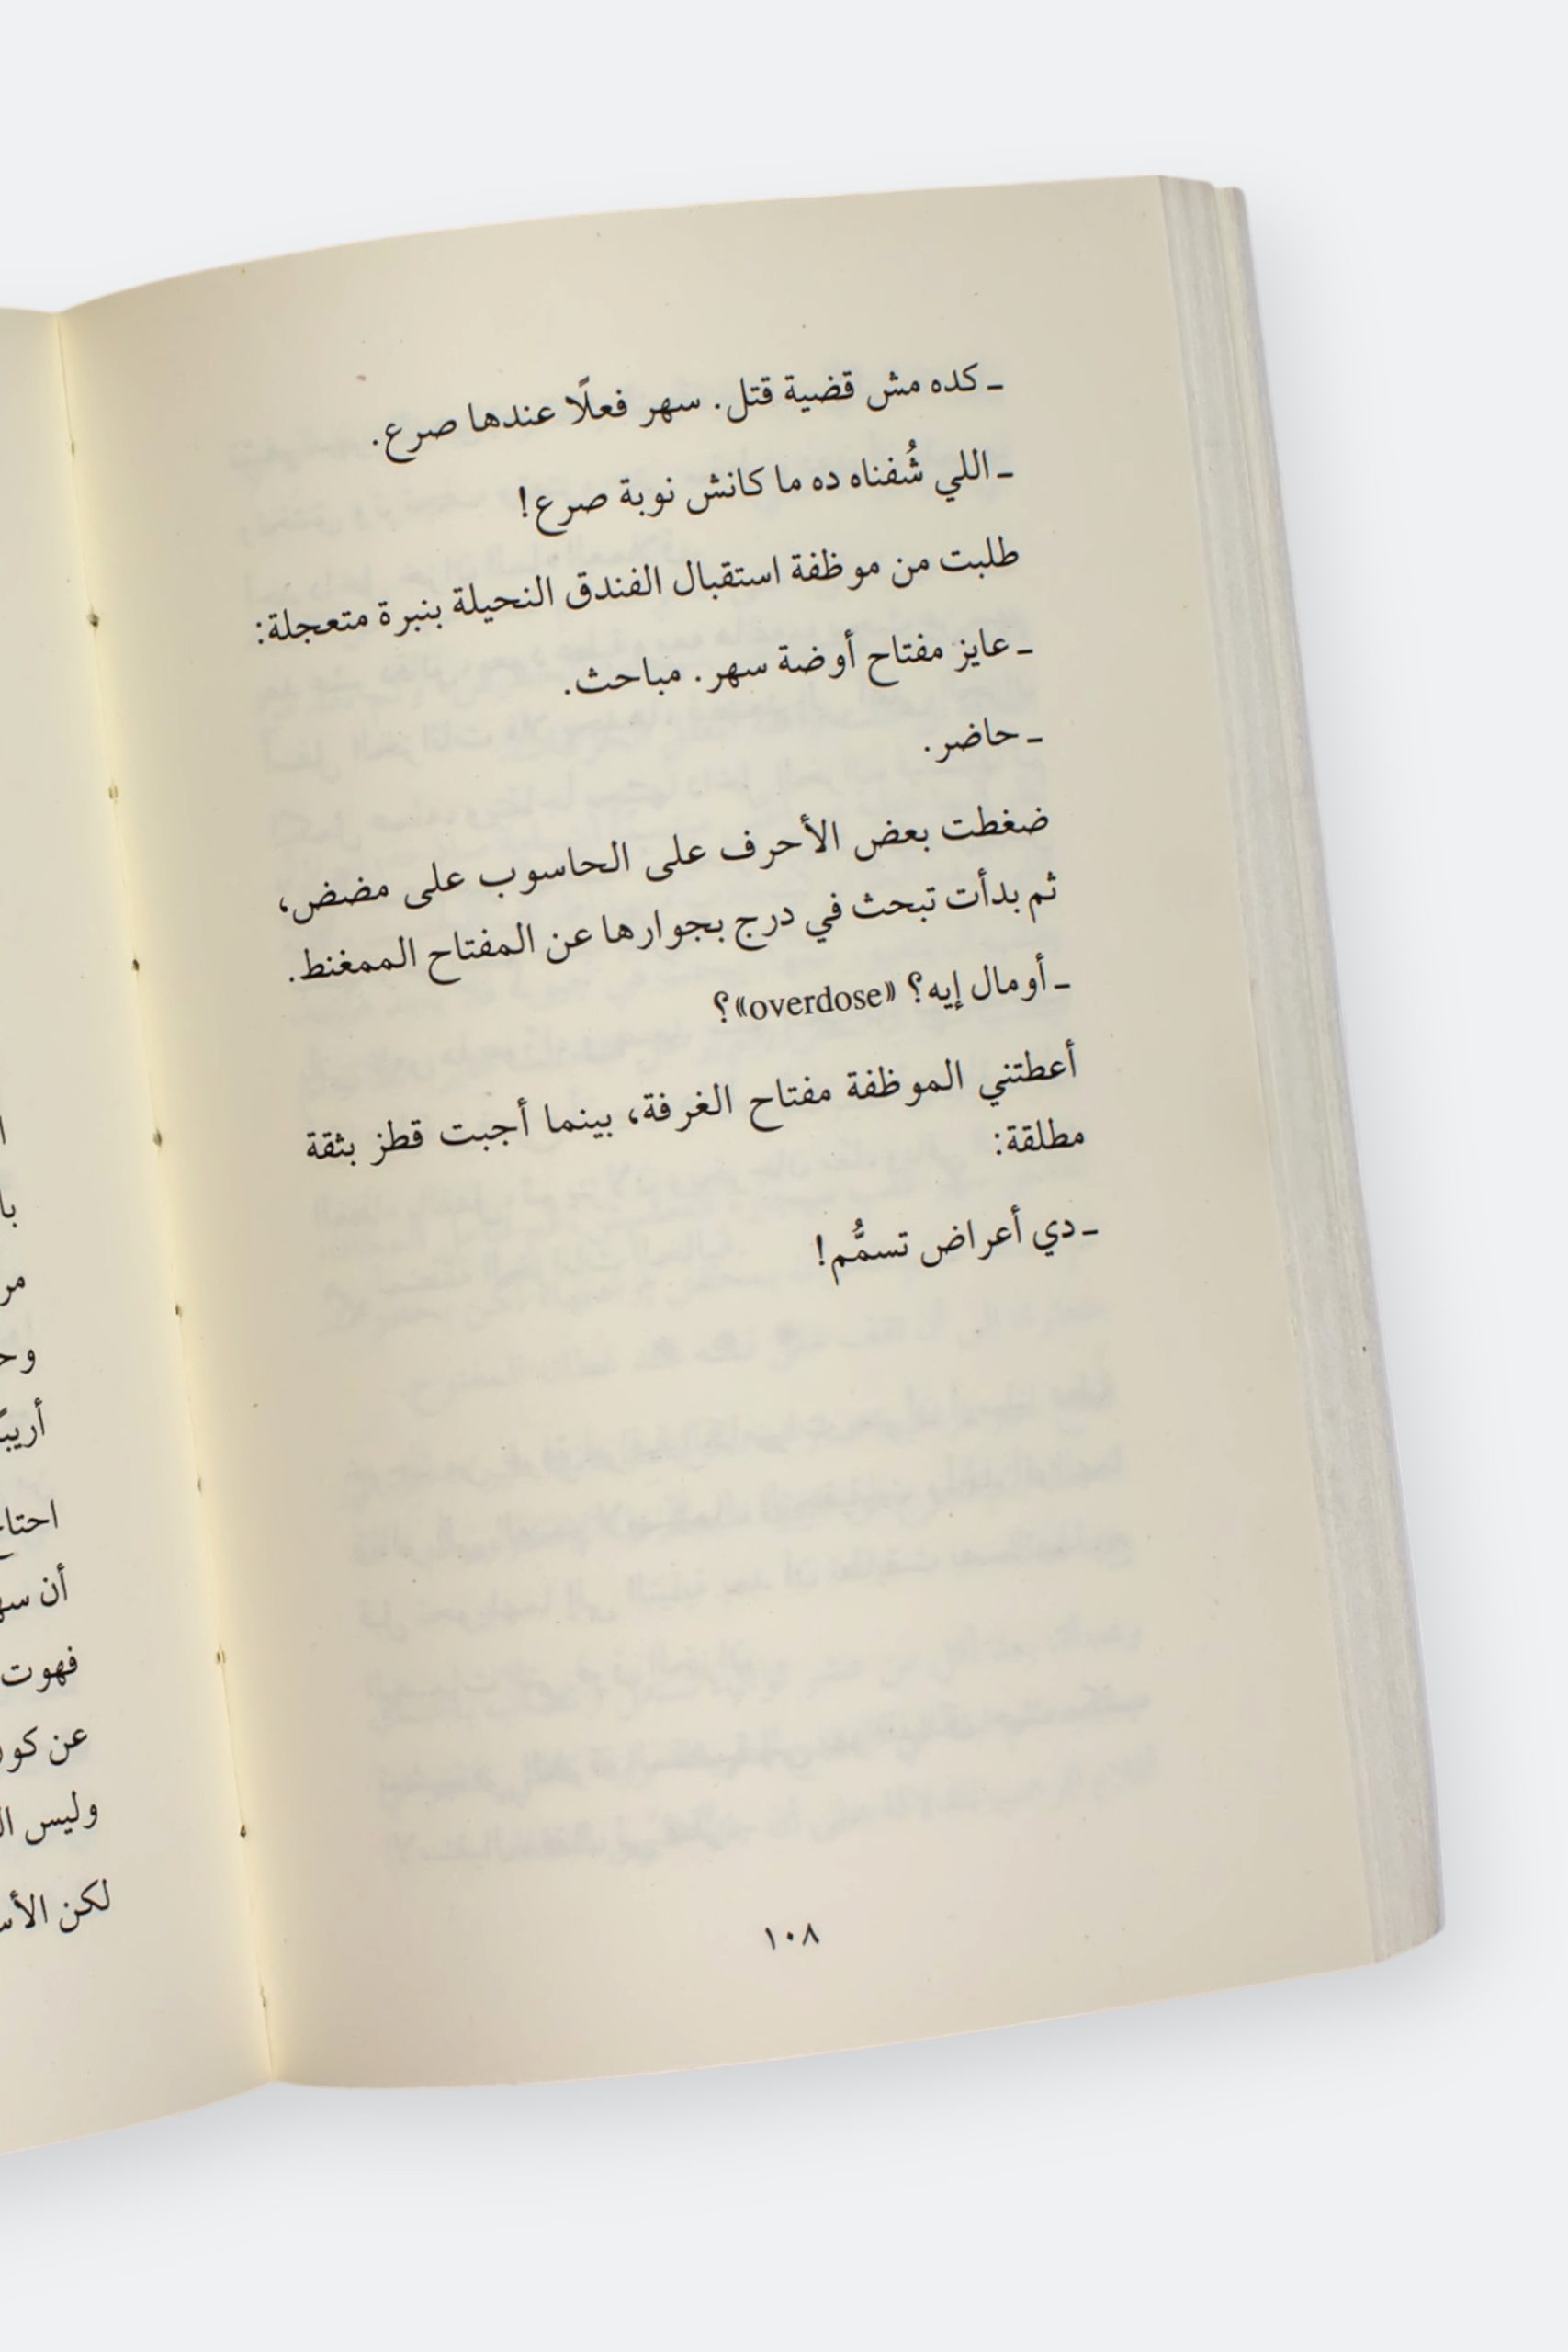 ـ كده مش قضية قتل. سهر فعلًا عندها صرع.
ـ اللي شُفناه ده ما كانش نوبة صرع!
طلبت من موظفة استقبال الفندق النحيلة بنبرة متعجلة:
ـ عايز مفتاح أوضة سهر. مباحث.
ـ حاضر.
ضغطت بعض الأحرف على الحاسوب على مضض،
ثم بدأت تبحث في درج بجوارها عن المفتاح الممغنط.
ـ أومال إيه؟ «overdose»؟
أعطتني الموظفة مفتاح الغرفة، بينما أجبت قطز بثقة
مطلقة:
ـ دي أعراض تسمُّم!
١٠٨
أن
فهوت
عن
وليس
لكن